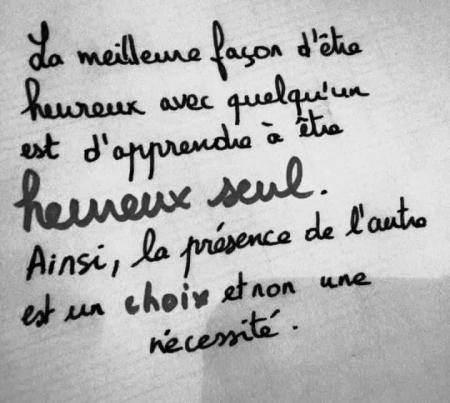 La meilleure façon d'être
heureux avec quelqu'un
est d'apprendre à être
heureux seul.
Ainsi, la présence de l'autre
est un choix et non une
nécessité.